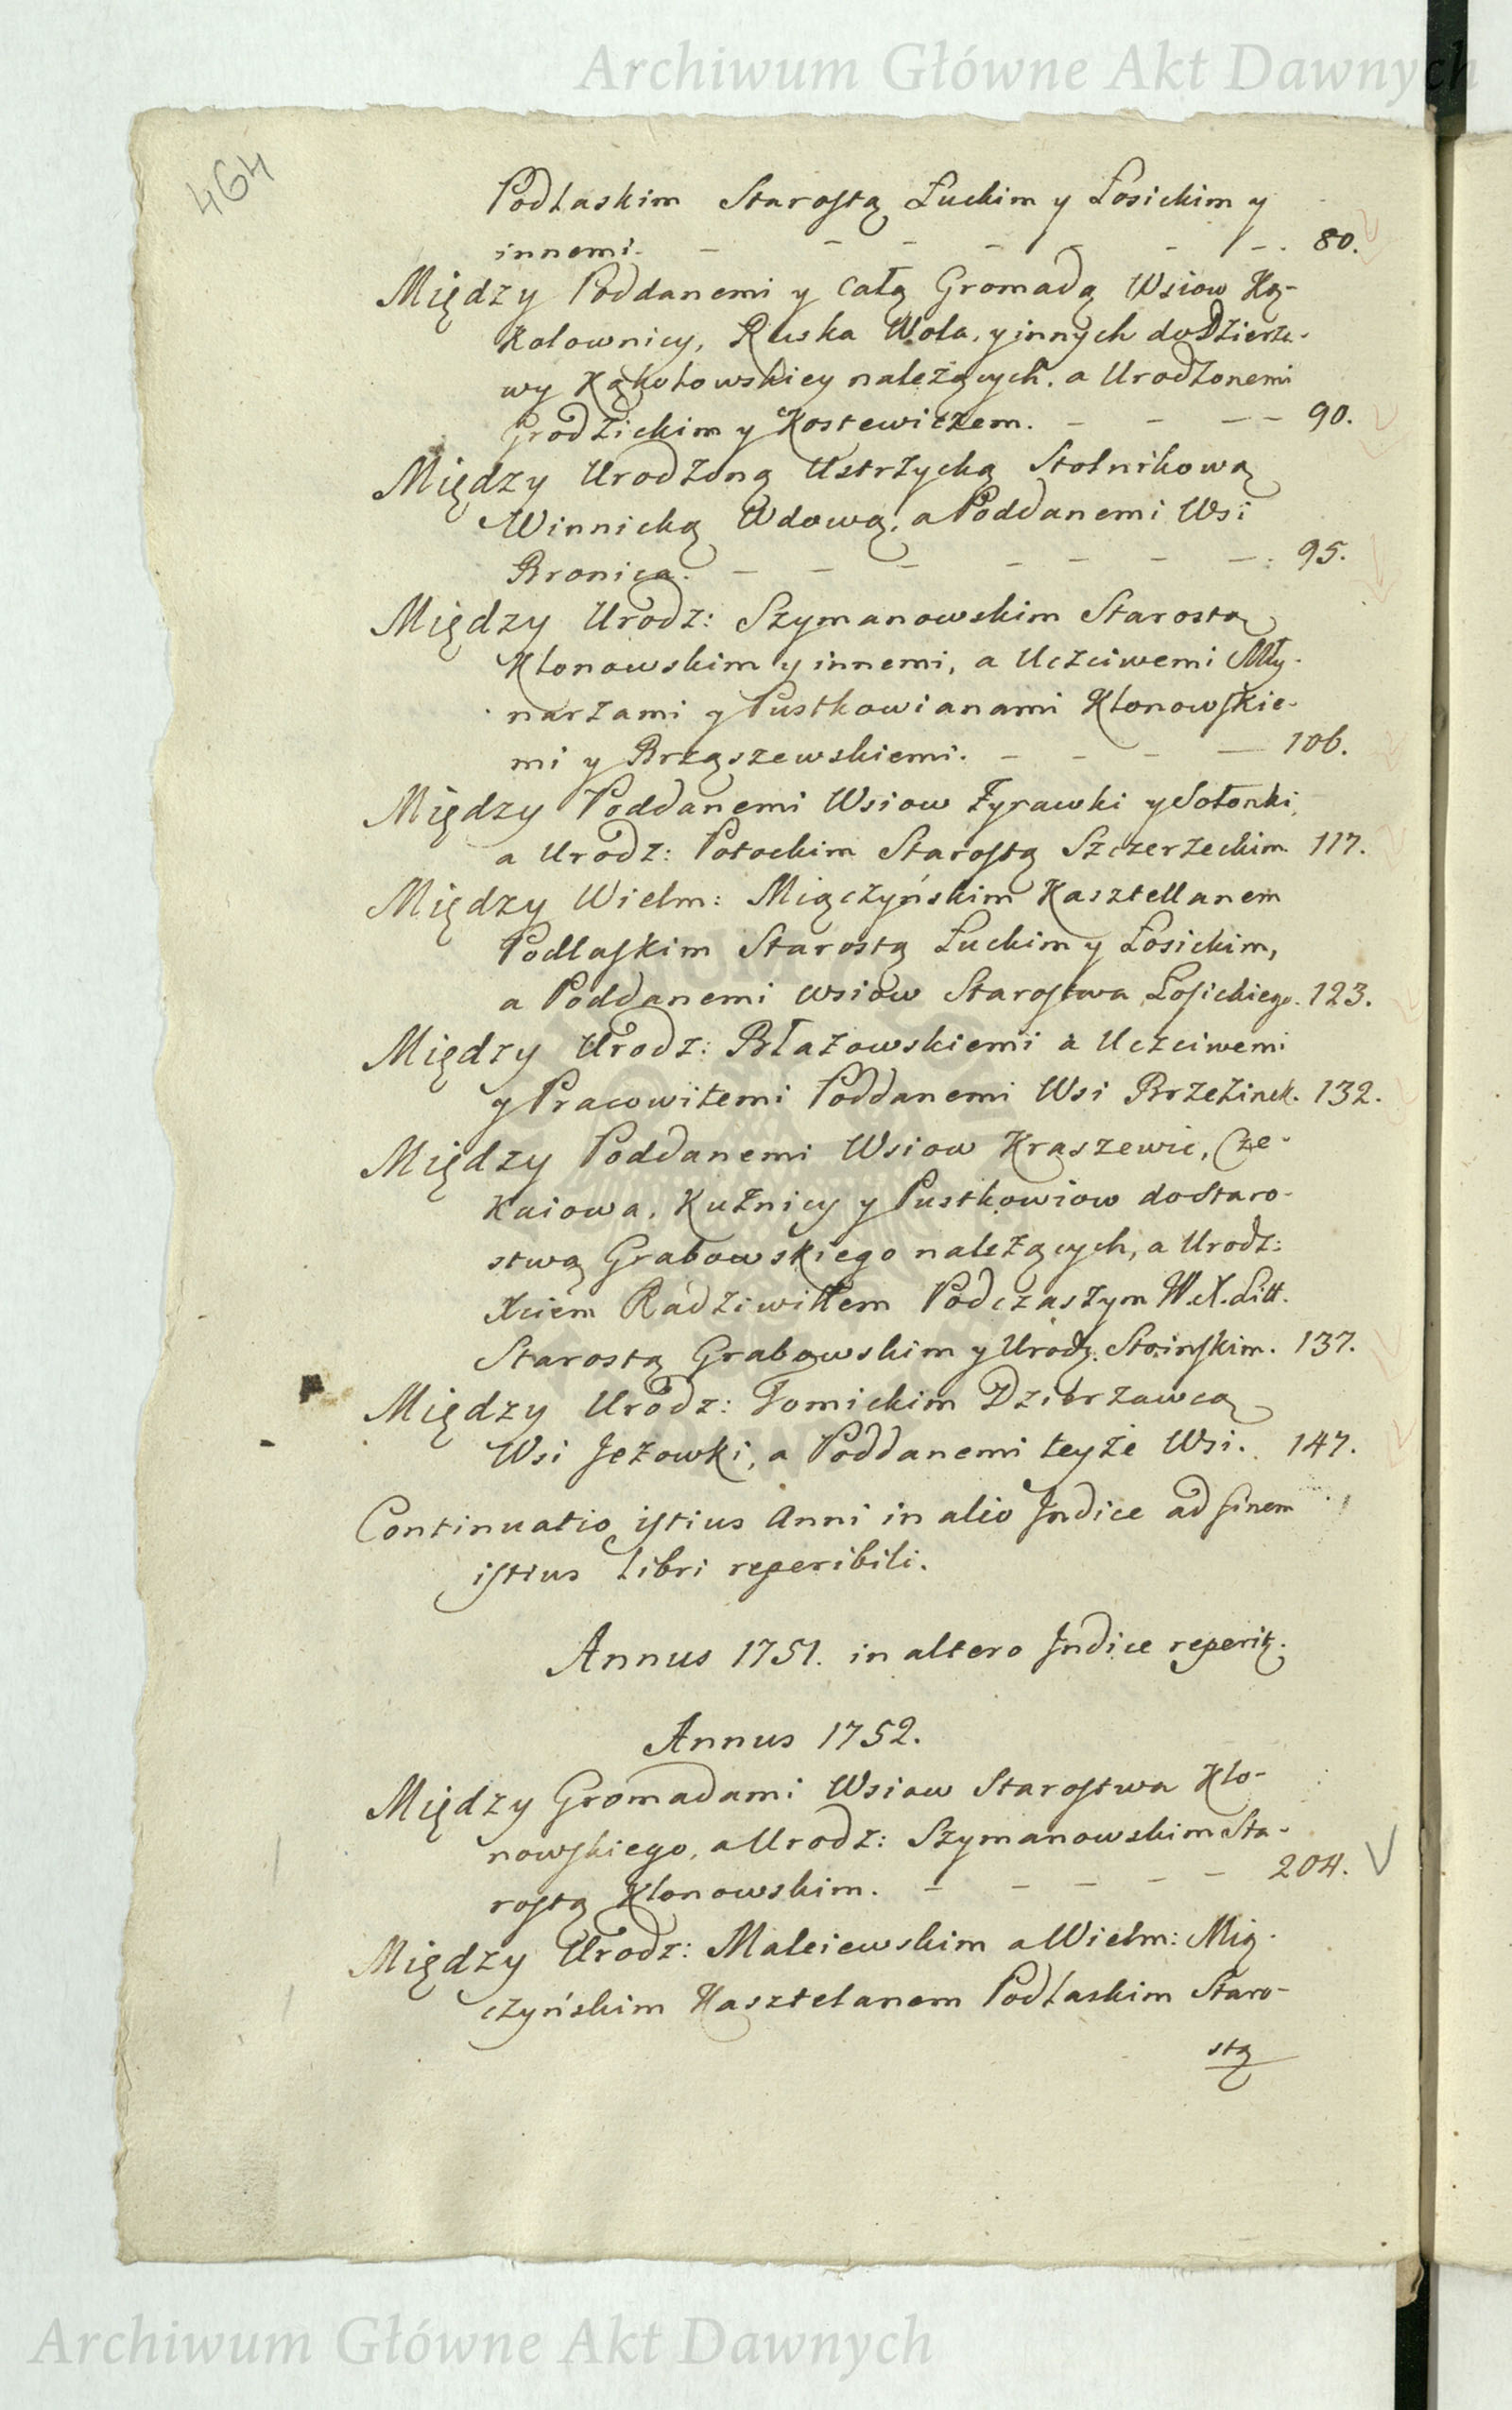 Archiwum Główne Akt Dawnych
464
Podlaskim Starostą Łuckim y Łosickim y
innemi. - - - - - - - . 80.
Między Poddanemi y całą Gromadą Wsiow Ką-
kolownicy, Ruska Wola, y innych do Dzierża-
wy Kąkolowskiey należących, a Urodzonemi
Grodzickim y Kostewiczem. - - - - 90.
Między Urodzoną Ustrzycką Stolnikową
Winnicką Wdową, a Poddanemi Wsi
Bronica. - - - - - - - : 95.
Między Urodz: Szymanowskim Starostą
Klonowskim y innemi, a Uczciwemi Mły-
narzami y Pustkowianami Klonowskie-
mi y Brząszewskiemi. - - - - 106.
Między Poddanemi Wsiow Żyrawki y Sołonki,
a Urodz: Potockim Starostą Szczerzeckim 117.
Między Wielm: Miączyńskim Kasztellanem
Podlaskim Starostą Łuckim y Łosickim,
a Poddanemi wsiow Starostwa Łosickiego. 123.
Między Urodz: Błażowskiemi a Uczciwemi
y Pracowitemi Poddanemi Wsi Brzezinek. 132.
Między Poddanemi Wsiow Kraszewic, Cze-
kaiowa, Kuźnicy y Pustkowiow do Staro-
stwa Grabowskiego należących, a Urodz:
Xciem Radziwiłłem Podczaszym W. X. Litt.
Starostą Grabowskim y Urodz. Stoinskim. 137.
Między Urodz: Tomickim Dzierżawcą
Wsi Jeżowki, a Poddanemi teyże Wsi. 147.
Continuatio istius Anni in alio Indice ad finem
istius Libri reperibili.
Annus 1751. in altero Indice reperitz.
Annus 1752.
Między Gromadami Wsiow Starostwa Klo-
nowskiego, a Urodz: Szymanowskim Sta-
rostą Klonowskim. - - - - - 204.
Między Urodz: Maleiewskim a Wielm: Mią-
czyńskim Kasztelanem Podlaskim Staro-
stą
Archiwum Główne Akt Dawnych